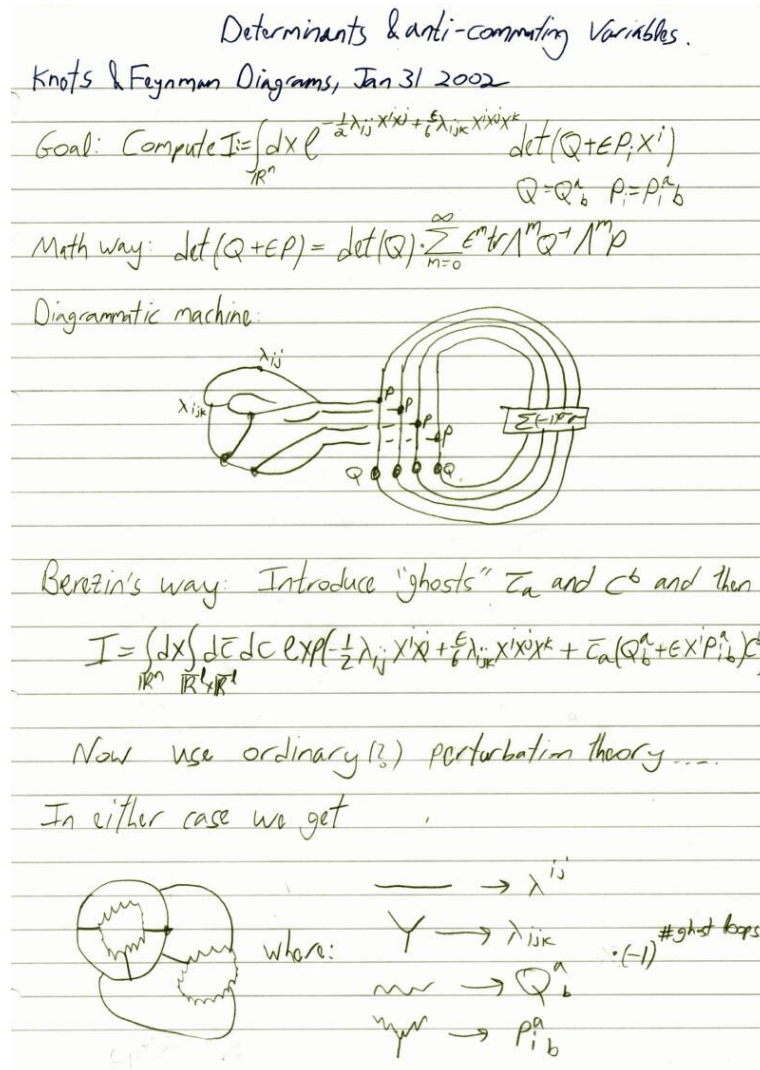 Determinants & anti-commuting Variables.
Knots & Feynman Diagrams, Jan 31 2002
Goal: Compute I:=∫_{ℝⁿ} dx e^{-½λ_{ij}x^i x^j + ε/6 λ_{ijk}x^i x^j x^k} det(Q+εP_i x^i)
Q=Q^a_b P_i=P_i^a_b
Math way: det(Q+εP) = det(Q)·∑_{m=0}^∞ ε^m tr Λ^m Q^{-1} Λ^m P
Diagrammatic machine:
λ_{ij}
λ_{ijk}
P
P
P
P
Q Q
Berezin's way: Introduce "ghosts" c̄_a and c^b and then
I=∫_{ℝⁿ} dx ∫ dc̄ dc exp(-½λ_{ij}x^i x^j + ε/6 λ_{ijk}x^i x^j x^k + c̄_a(Q^a_b + εx^i P_i^a_b)c^b
Now use ordinary(?) perturbation theory.....
In either case we get
where:
→ λ^{ij}
→ λ_{ijk}
·(-1)^{#ghost loops}
→ Q^a_b
→ P_i^a_b